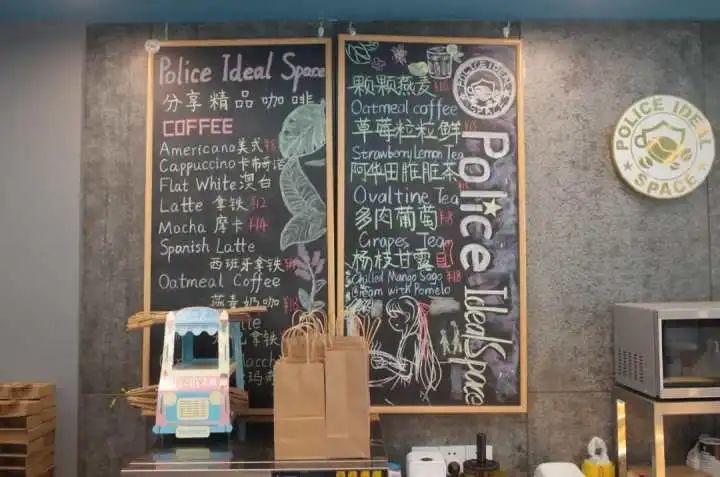 Police Ideal Space
分享精品咖啡
COFFEE
Americano美式
Cappuccino卡布奇诺
Flat White澳白
Latte 拿铁 ¥12
Mocha 摩卡 ¥14
Spanish Latte
西班牙拿铁
Oatmeal Coffee
燕麦奶咖 ¥18
颗颗燕麦
Oatmeal coffee
草莓粒粒鲜
Strawberry Lemon Tea
阿华田脏脏茶
Ovaltine Tea
多肉葡萄
Grapes Tea
杨枝甘露 ¥18
Chilled Mango Sago
Cream with Pomelo
Police Ideal Space
POLICE IDEAL
SPACE
POLICE IDEAL
SPACE